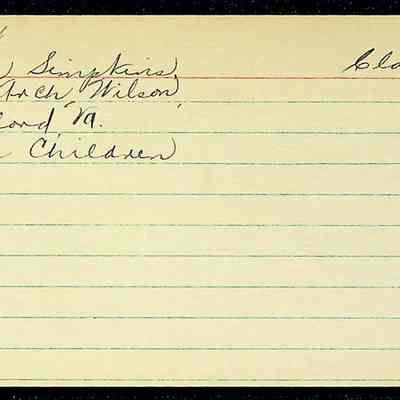 Simpkins
Arch Wilson
Va.
Children